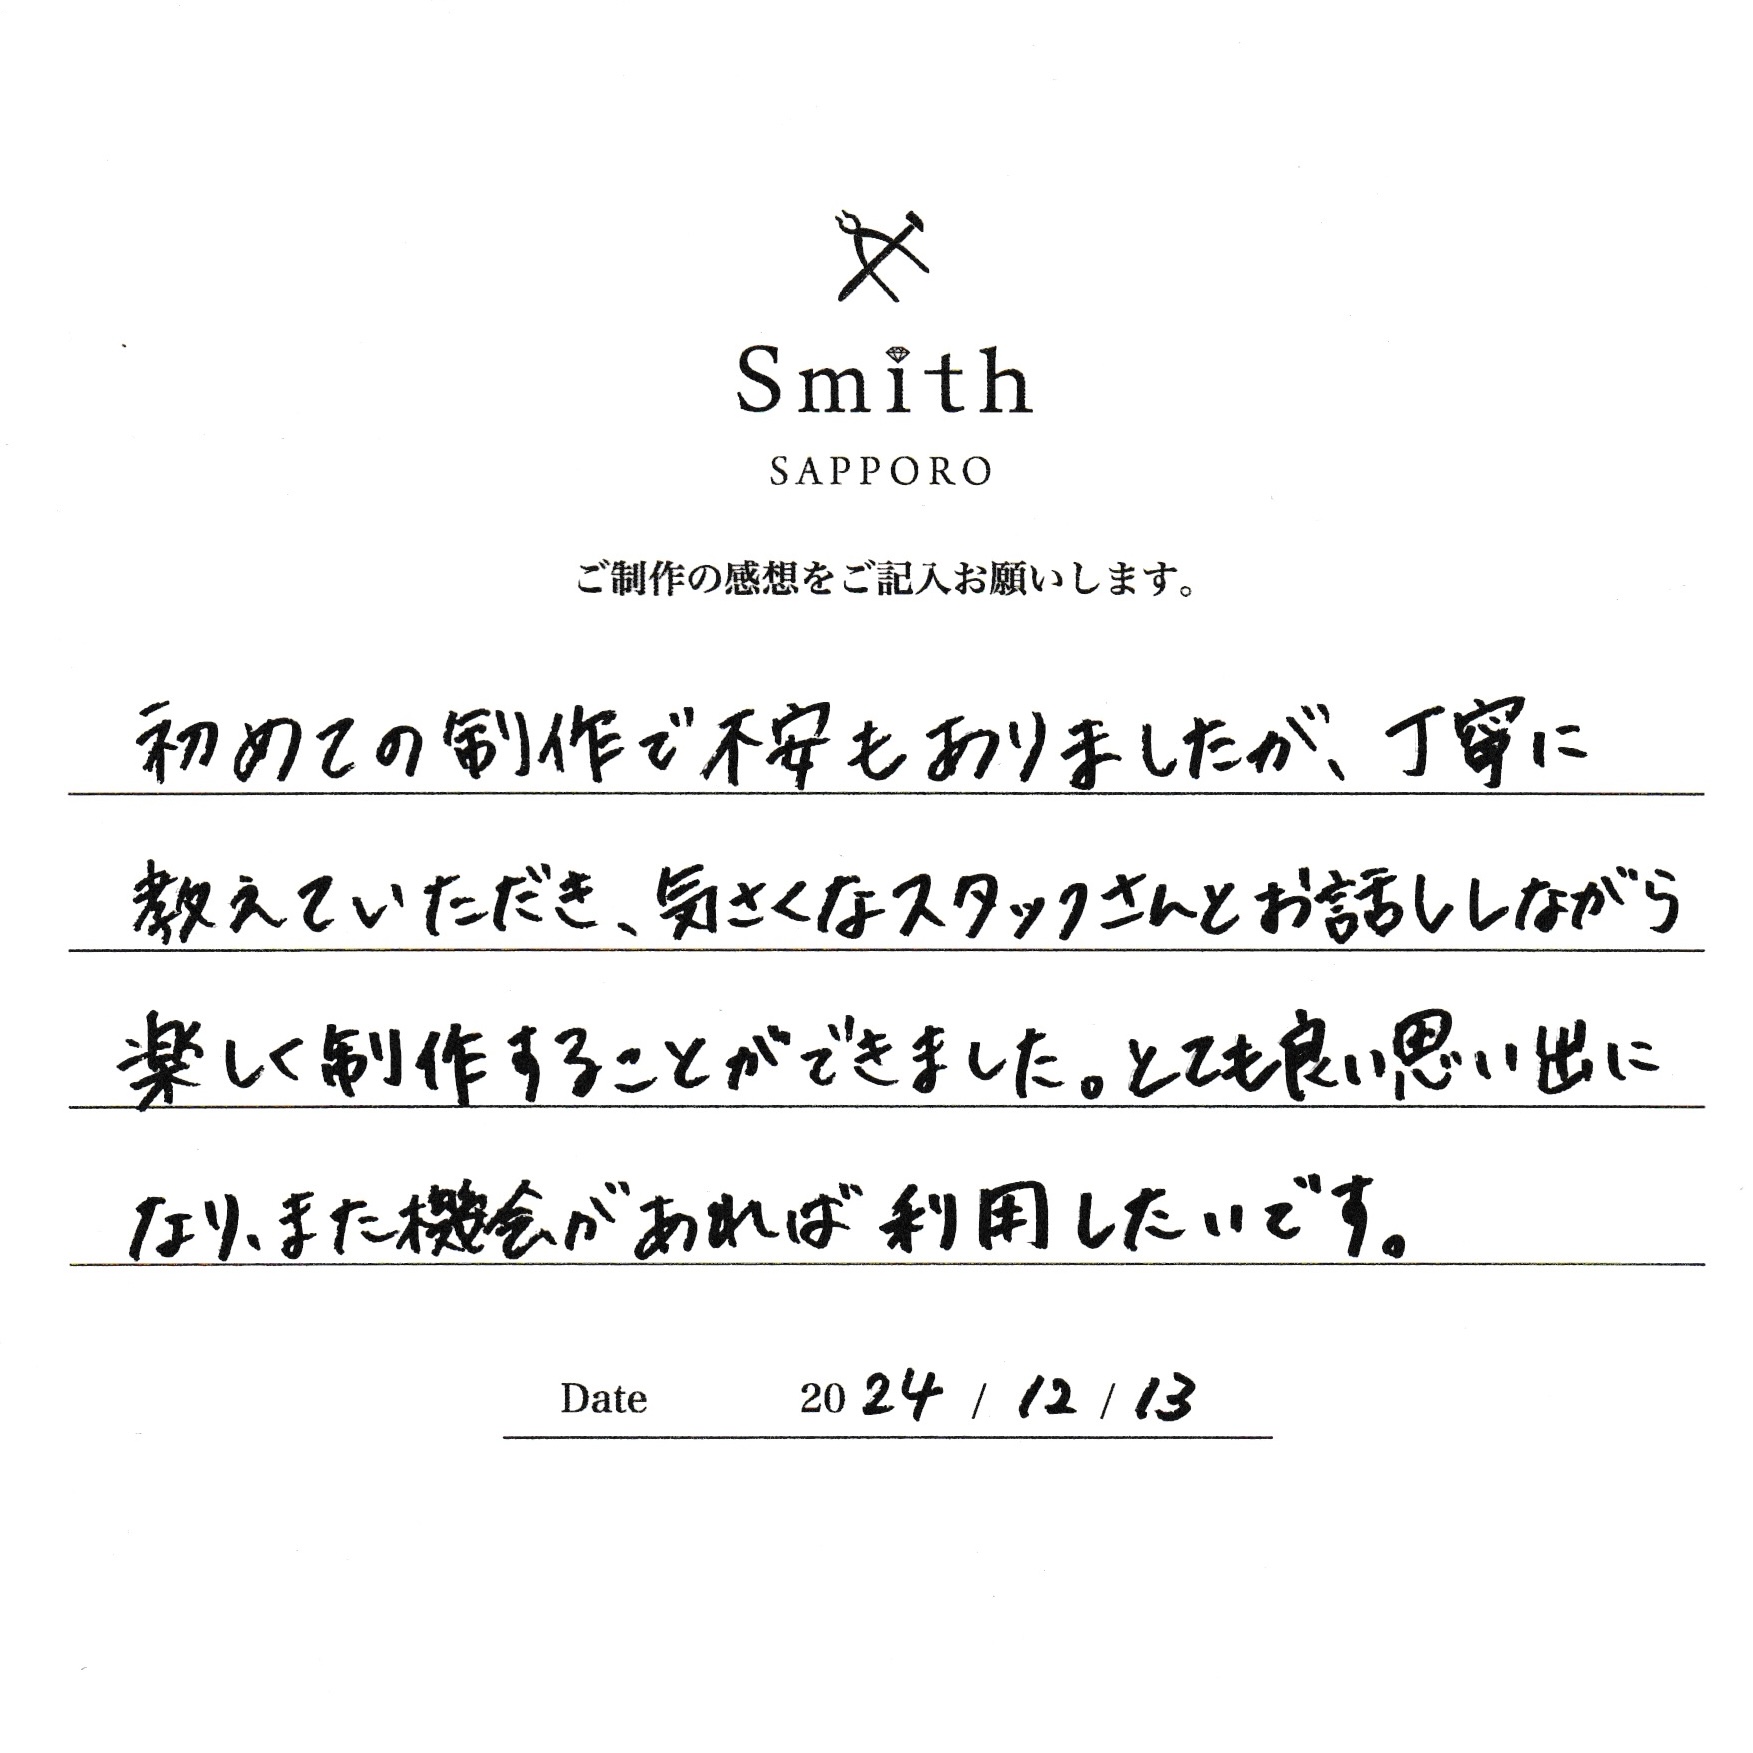 Smith
SAPPORO
ご制作の感想をご記入お願いします。
初めての制作で不安もありましたが、丁寧に
教えていただき、気さくなスタッフさんとお話ししながら
楽しく制作することができました。とても良い思い出に
なり、また機会があれば利用したいです。
Date 2024 / 12 / 13